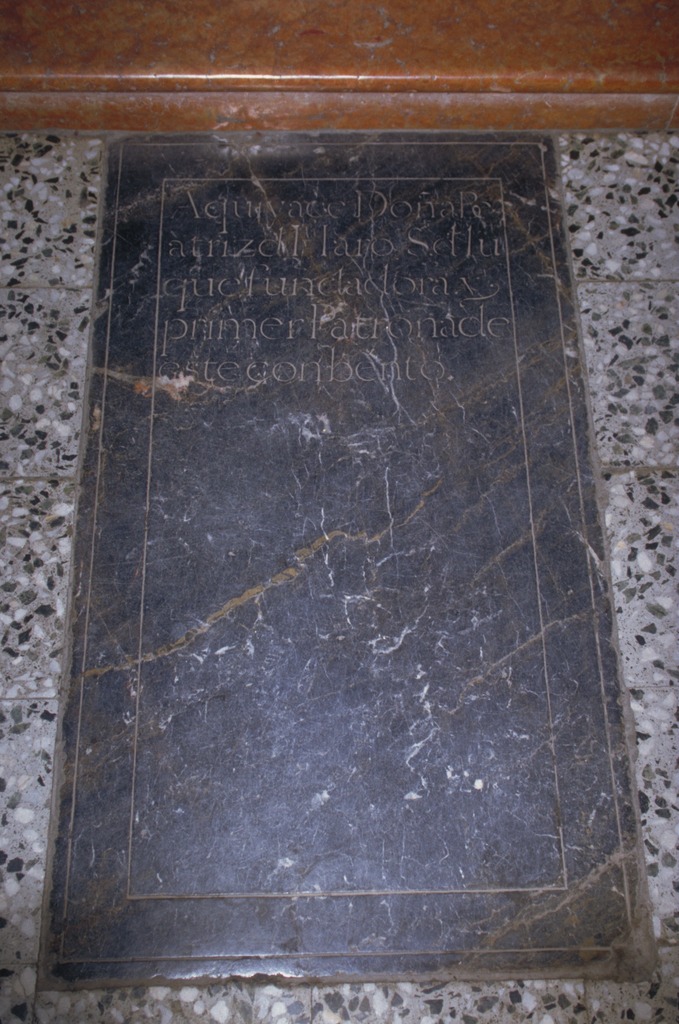 Aqui yace Doña Be
atriz de Haro Seflu
que fundadora y
primer Patrona de
este conbento.